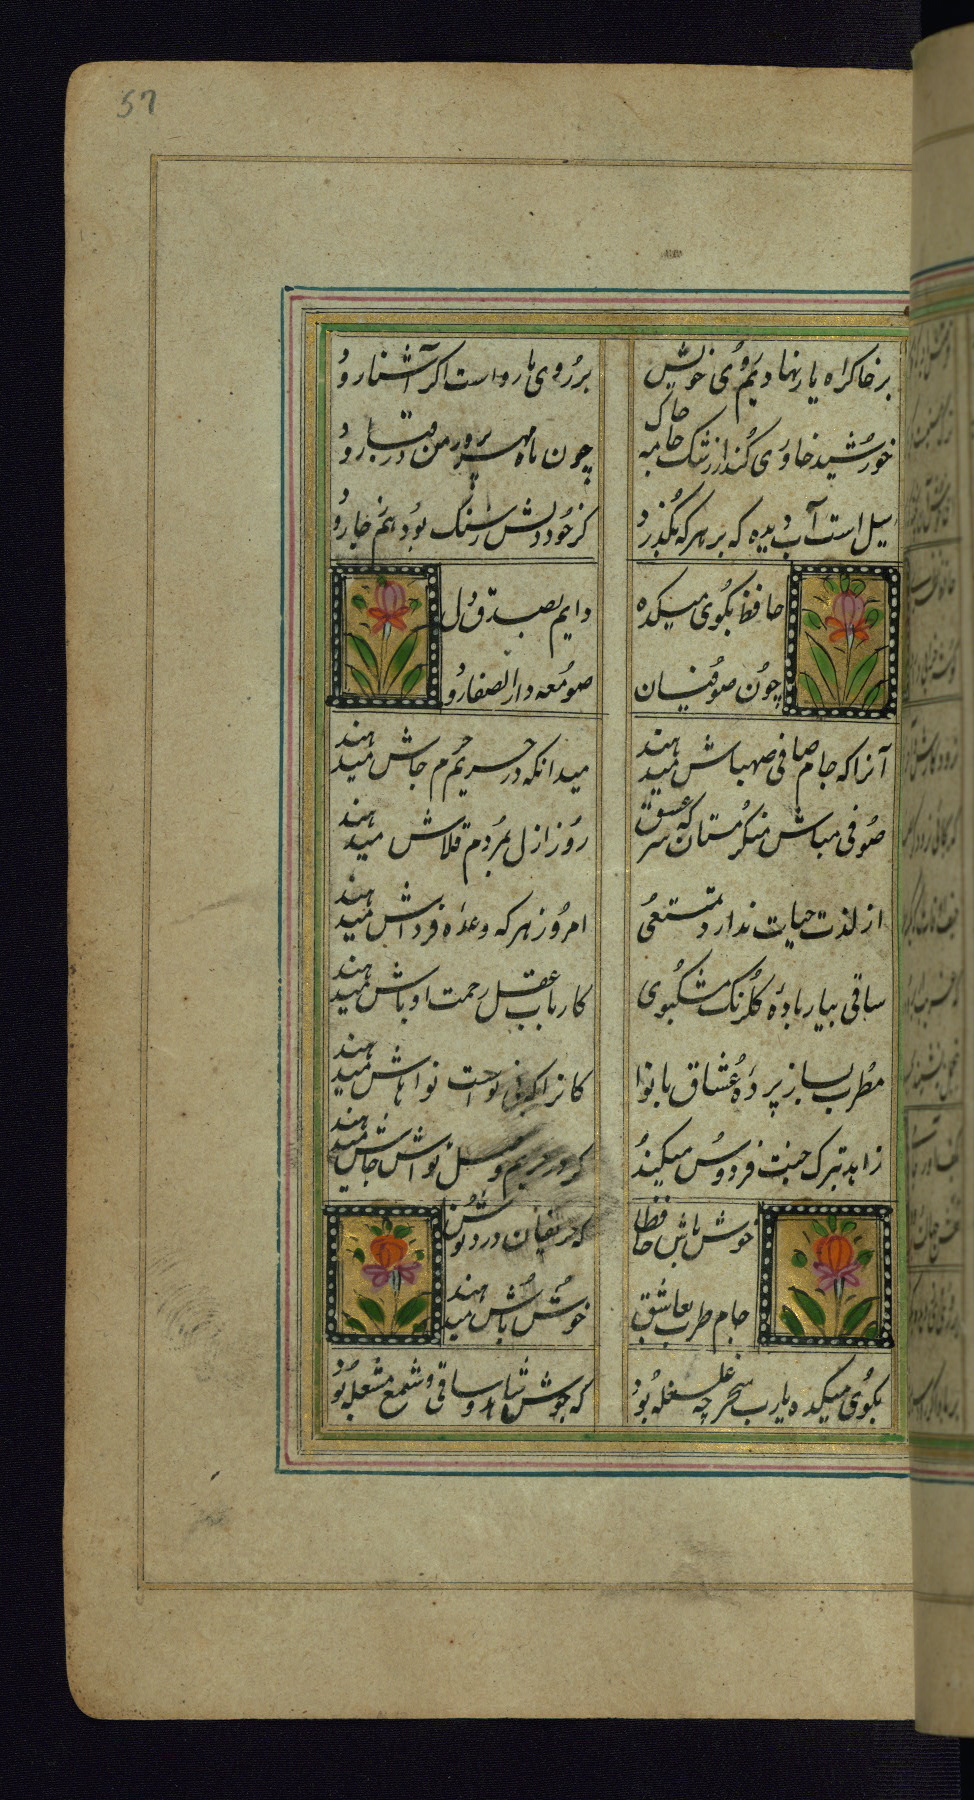 57
بر خاک راه یار نهادیم روی خویش
بر روی ما رواست اگر آشنا رود
خورشید خاوری کند از رشک جامه چاک
چون ماه مهرپرور من در قبا رود
سیل است آب دیده که بر هر که بگذرد
گر خود دلش ز سنگ بود هم ز جا رود
حافظ بکوی میکده
دایم بصدق دل
چون صوفیان
صومعه دار الصفا رود
آنرا که جام صافی صهباش میدهند
میدانکه در حریم حرم جاش میدهند
صوفی مباش منکر مستان که سر عشق
روز ازل بمردم قلاش میدهند
از لذت حیات ندارد تمتعی
امروز هر که وعده فرداش میدهند
ساقی بیار باده گلرنگ مشکبوی
کارباب عقل رحمت اوباش میدهند
مطرب بساز پرده عشاق با نوا
کانرا که نواخت نواهاش میدهند
زاهد بترک جنت فردوس میکند
گر در حریم وصل تواش جاش میدهند
خوش باش حافظا
که حریفان درد نوش
جام طرب بعاشق
خوش باش میدهند
بکوی میکده یارب سحر چه غلغله بود
که جوش شاهد و ساقی و شمع مشعله بود